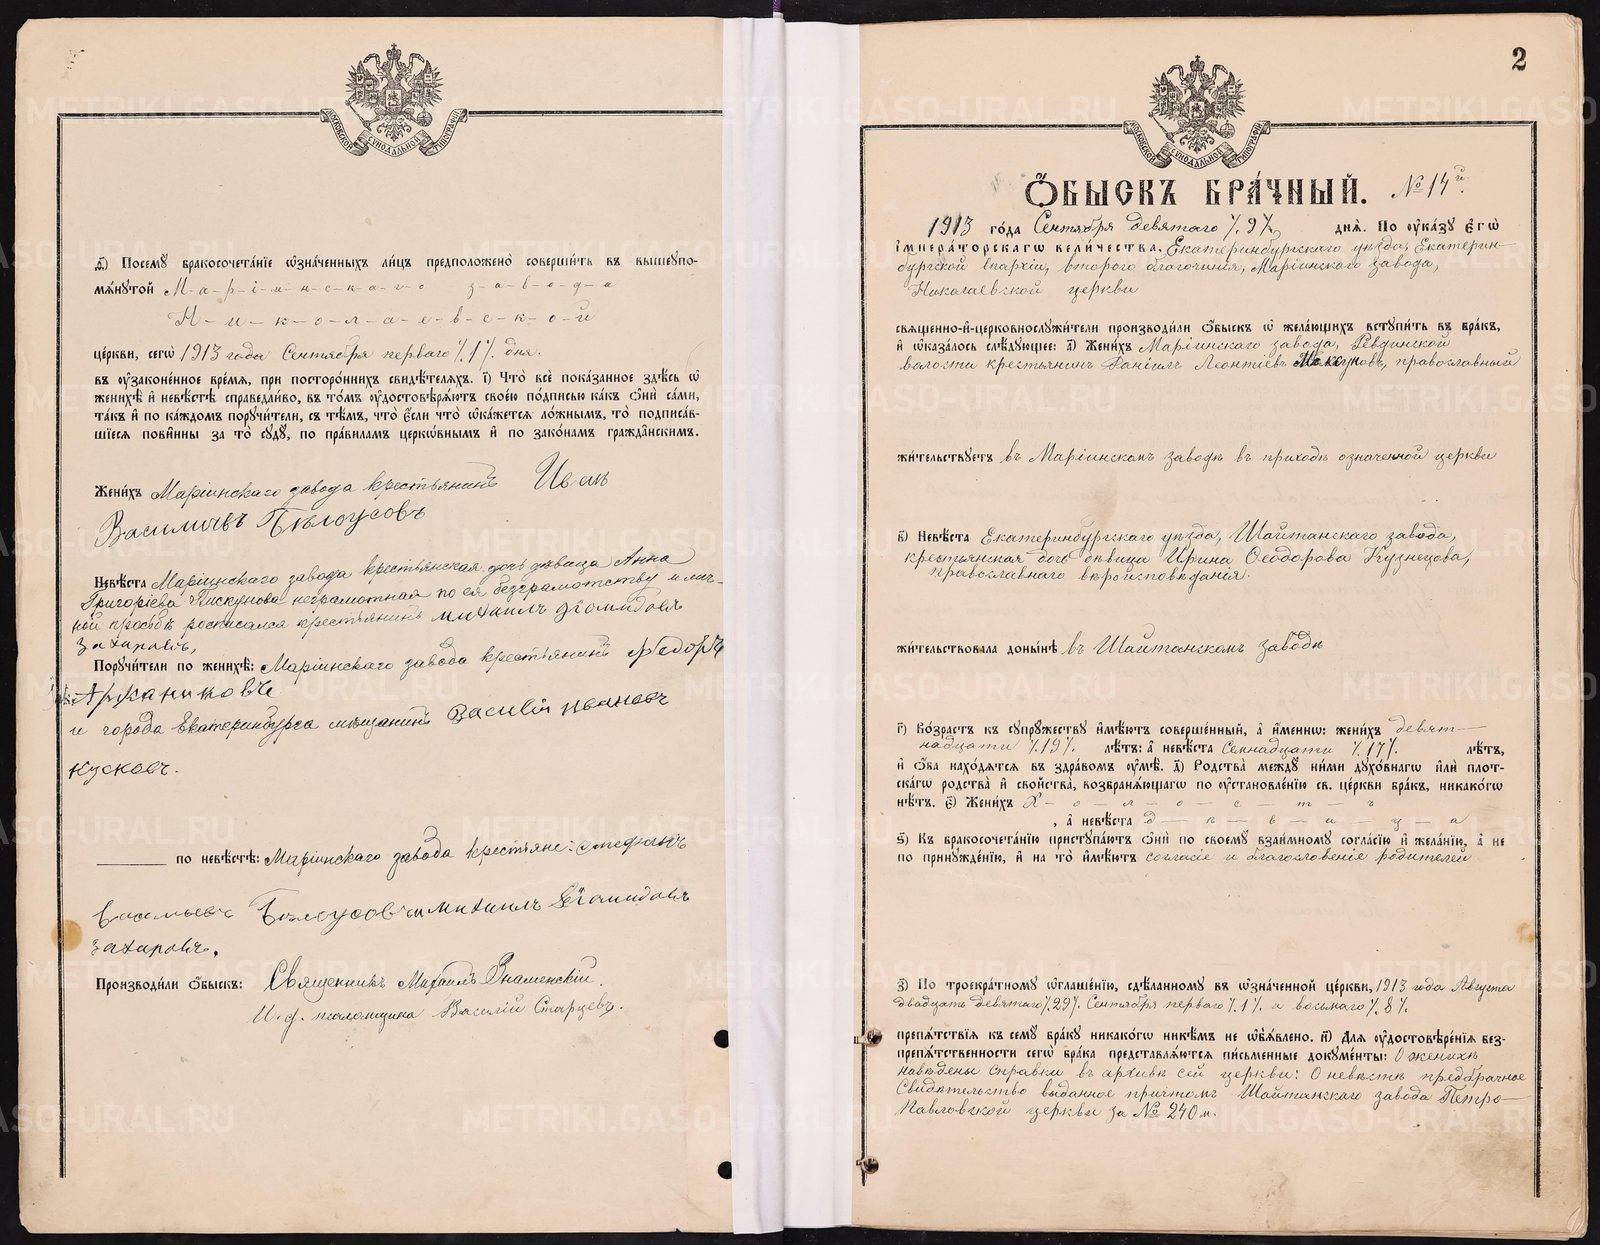 МОСКОВСКОЙ СѴНОДАЛЬНОЙ ТИПОГРАФІИ
д҃) Посемꙋ бракосочета́нїе ѡзна́ченныхъ ли́цъ предположено̀ соверши́ть въ вышеꙋпо-
мѧ́нꙋтой М-а-р-і-и-н-с-к-а-г-о з-а-в-о-д-а
Н-и-к-о-л-а-е-в-с-к-о-й
це́ркви, сегѡ̀ 1913 года Сентября перваго /.1/. дня.
въ ᲂу҆зако́ненное вре́мѧ, при посторо́ннихъ свидѣ́телѧхъ. і҃) Что̀ всѐ пока́занное здѣ́сь ѡ
женихѣ̀ и҆ невѣ́стѣ справедли́во, въ то́мъ ᲂу҆достовѣрѧ́ютъ свое́ю по́дписью ка́къ ѻ҆нѝ са́ми,
та́къ и҆ по ка́ждомъ порꙋчи́тели, съ тѣ́мъ, что̀ є҆́сли что̀ ѡ҆ка́жется ло́жнымъ, то̀ подписа́в-
шїесѧ пови́нны за то̀ сꙋдꙋ̀, по пра́виламъ церкѡ́внымъ и҆ по зако́намъ гражда́нскимъ.
Жени́хъ Маріинскаго завода крестьянинъ Иван
Василичвъ Бѣлоусовъ
Невѣ́ста Маріинскаго завода крестьянская дочь дѣвица Анна
Григоріева Пискунова неграмотная по ея безграмотству и лич-
ной просьбѣ росписался крестьянинъ михаилъ дїомидовъ
захаровъ,
Порꙋчи́тели по женихѣ̀: Маріинскаго завода крестьянинъ Федоръ
Аржаниковъ
и города Екатеринбурга мѣщанинъ Василій ивановъ
кусковъ.
по невѣ́стѣ: Маріинскаго завода крестьяне:
Васильевъ Бѣлоусовъ и михаилъ дїомидовъ
захаровъ.
Производи́ли ѻ҆́быскъ: Священникъ Михаилъ Знаменскій.
И. ф. псаломщика Василій Старцевъ.
2
МОСКОВСКОЙ СѴНОДАЛЬНОЙ ТИПОГРАФІИ
Ѻ҆́БЫСКЪ БРА́ЧНЫЙ. № 14й.
1913 го́да Сентября девятаго /.9/. днѧ̀. По ᲂу҆ка́зꙋ Є҆гѡ̀
И҆мпера́торскагѡ вели́чества, Екатеринбургскаго уѣзда, Екатерин-
бургской Епархіи, второго благочинія, Маріинскаго завода,
Николаевской церкви
свѧще́нно-и҆-церковнослꙋжи́тели производи́ли ѻ҆́быскъ ѡ҆ жела́ющихъ встꙋпи́ть въ бра́къ,
и҆ ѡ҆каза́лось слѣ́дꙋющее: а҃) Жени́хъ Маріинскаго завода, Ревдинской
волости крестьянинъ Даніилъ Леонтіевъ православный
жи́тельствꙋетъ въ Маріинскомъ заводѣ въ приходѣ означенной церкви
в҃) Невѣ́ста Екатеринбургскаго уѣзда, Шайтанскаго завода,
крестьянская дочь дѣвица Ирина Ѳеодорова Кузнецова,
православнаго вѣроисповѣданія.
жи́тельствовала доны́нѣ въ Шайтанскомъ заводѣ
г҃) Во́зрастъ къ сꙋпрꙋ́жествꙋ и҆мѣ́ютъ соверше́нный, а҆ и҆́менно: жени́хъ девят-
надцати /.19/. лѣ́тъ: а҆ невѣ́ста Семнадцати /.17/. лѣ́тъ,
и҆ ѻ҆́ба нахо́дѧтсѧ въ здра́вомъ ᲂу҆мѣ̀. д҃) Родства̀ междꙋ̀ ни́ми дꙋхо́внагѡ и҆лѝ пло́т-
скагѡ родства̀ и҆ сво́йства, возбранѧ́ющагѡ по ᲂу҆становле́нїю св. це́ркви бра́къ, никако́гѡ
нѣ́тъ. є҃) Жени́хъ Х-о-л-о-с-т-ъ
, а҆ невѣ́ста д-ѣ-в-и-ц-а
ѕ҃) Къ бракосочета́нїю пристꙋпа́ютъ ѻ҆нѝ по своемꙋ̀ взаи́мномꙋ согла́сїю и҆ жела́нїю, а҆ не
по принꙋжде́нїю, и҆ на то̀ и҆мѣ́ютъ согласіе и благословеніе родителей
з҃) По троекра́тномꙋ ѡ҆глаше́нїю, сдѣ́ланномꙋ въ ѡ҆зна́ченной це́ркви, 1913 года Августа
двадцать девятаго /.29/. Сентября перваго /.1/. и восьмаго /.8/.
препѧ́тствїя къ семꙋ̀ бра́кꙋ никако́гѡ никѣ́мъ не ѡ҆бъѧ́влено. и҃) Для ᲂу҆достовѣре́нїя без-
препѧ́тственности сегѡ̀ бра́ка представлѧ́ются пи́сьменные докꙋме́нты: О женихѣ
наведены справки въ архивѣ сей церкви: О невѣстѣ предбрачное
Свидѣтельство выданное причтомъ Шайтанскаго завода Петро-
Павловской церкви за № 240 м.
METRIKI.GASO-URAL.RU